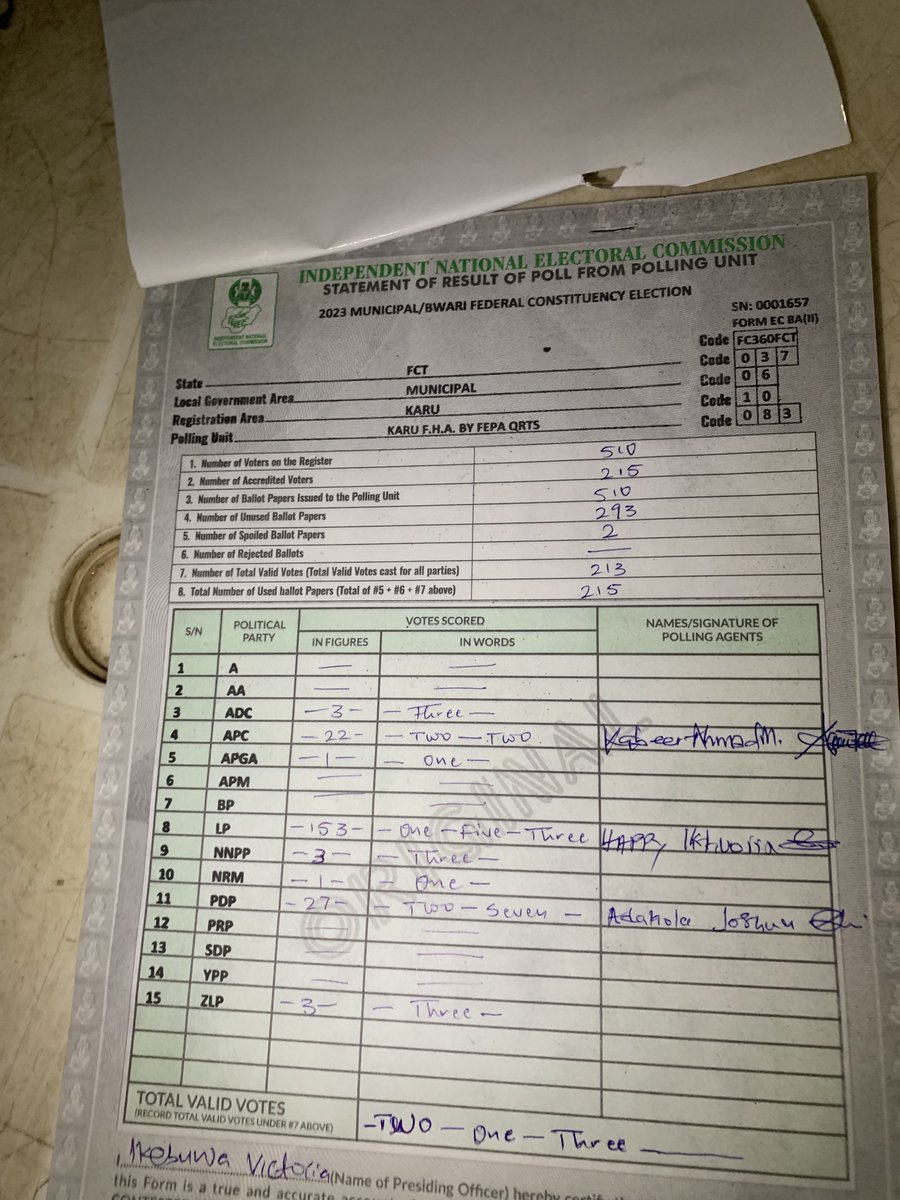 INDEPENDENT NATIONAL ELECTORAL COMMISSION
STATEMENT OF RESULT OF POLL FROM POLLING UNIT
2023 MUNICIPAL/BWARI FEDERAL CONSTITUENCY ELECTION
INDEPENDENT NATIONAL ELECTORAL COMMISSION
SN: 0001657
FORM EC 8A(II)
State FCT Code FC360FCT
Local Government Area MUNICIPAL Code 037
Registration Area KARU Code 06
Polling Unit KARU F.H.A. BY FEPA QRTS Code 10
Code 083
1. Number of Voters on the Register 510
2. Number of Accredited Voters 215
3. Number of Ballot Papers Issued to the Polling Unit 510
4. Number of Unused Ballot Papers 293
5. Number of Spoiled Ballot Papers 2
6. Number of Rejected Ballots —
7. Number of Total Valid Votes (Total Valid Votes cast for all parties) 213
8. Total Number of Used ballot Papers (Total of #5 + #6 + #7 above) 215
S/N POLITICAL PARTY VOTES SCORED NAMES/SIGNATURE OF POLLING AGENTS
IN FIGURES IN WORDS
1 A — —
2 AA — —
3 ADC -3- - Three -
4 APC -22- - TWO - TWO Ahmad M.
5 APGA -1- - One -
6 APM — —
7 BP — —
8 LP -153- - One - Five - Three HAPPY
9 NNPP -3- - Three -
10 NRM -1- - One -
11 PDP -27- TWO - Seven - Joshua
12 PRP — —
13 SDP — —
14 YPP — —
15 ZLP -3- - Three -
ORIGINAL
TOTAL VALID VOTES
(RECORD TOTAL VALID VOTES UNDER #7 ABOVE) -TWO - One - Three —
I, Ikebuwa Victoria (Name of Presiding Officer) hereby certify
this Form is a true and accurate